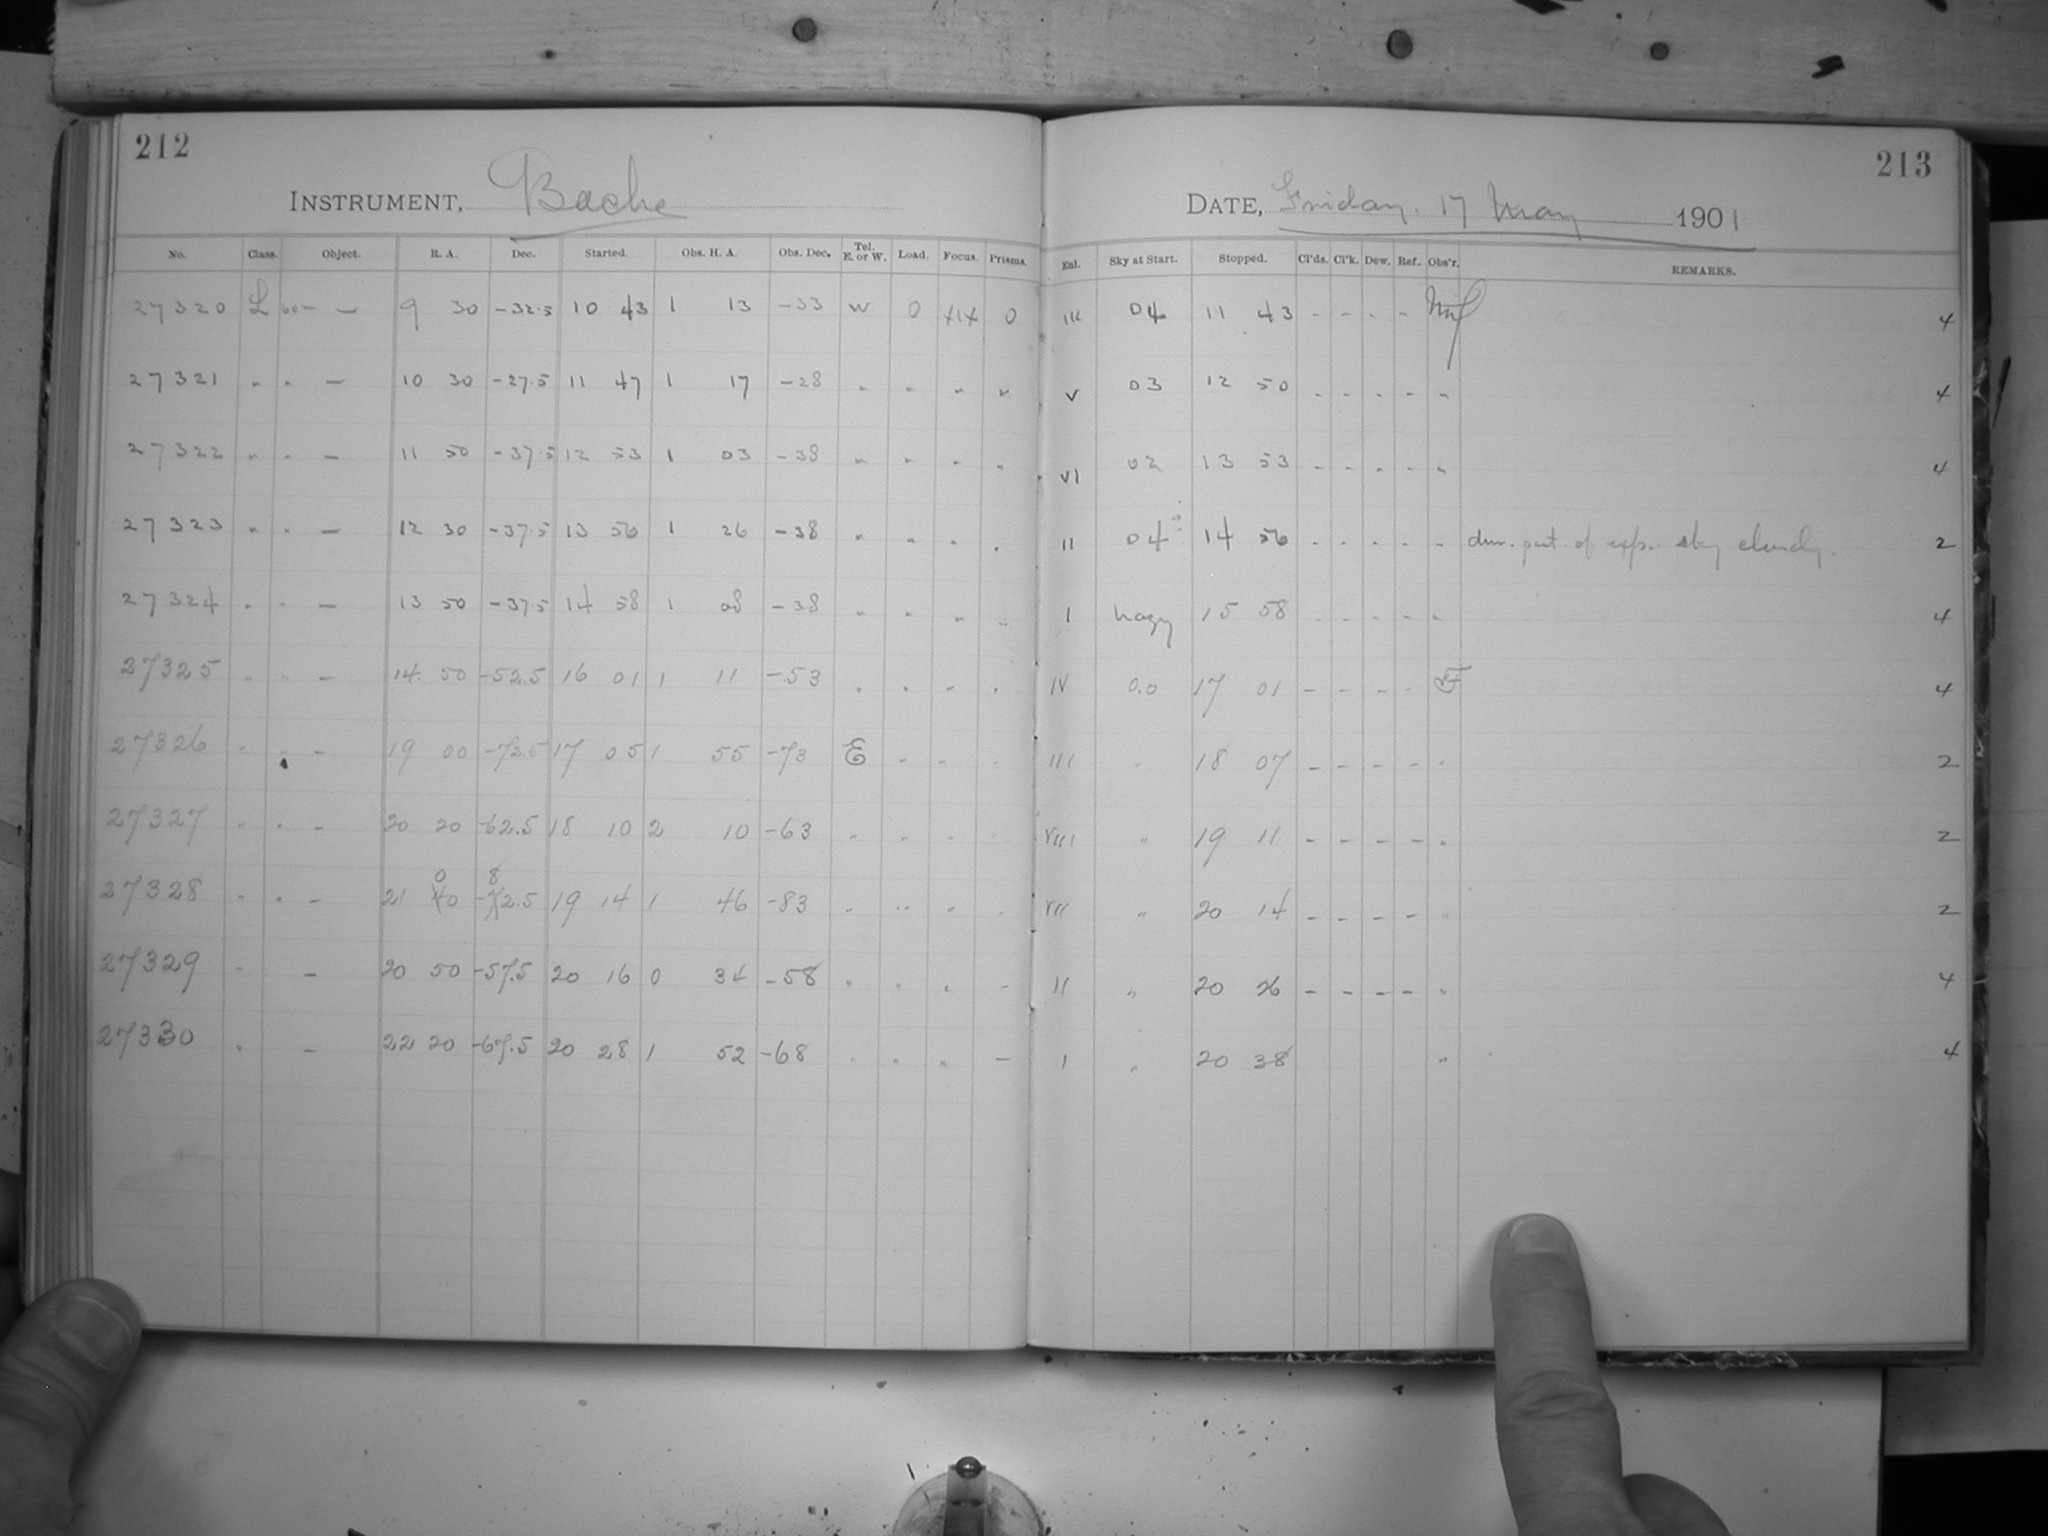 212
INSTRUMENT, Bache
No. Class. Object. R. A. Dec. Started. Obs. H. A. Obs. Dec. Tel. E. or W. Load. Focus. Prisms.
27320 L 60m — 9 30 -32.5 10 43 1 13 -33 W 0 0
27321 " " — 10 30 -27.5 11 47 1 17 -28 " " " "
27322 " " — 11 50 -37.5 12 53 1 03 -38 " " " "
27323 " " — 12 30 -37.5 13 56 1 26 -38 " " " "
27324 " " — 13 50 -37.5 14 58 1 08 -38 " " " "
27325 " " — 14 50 -52.5 16 01 1 11 -53 " " " "
27326 " " — 19 00 -72.5 17 05 1 55 -73 E " " "
27327 " " — 20 20 -62.5 18 10 2 10 -63 " " " "
0 8
27328 " " — 21 40 -72.5 19 14 1 46 -83 " " " "
27329 " — 20 50 -57.5 20 16 0 34 -58 " " " -
27330 " — 22 20 -67.5 20 28 1 52 -68 " " " —
213
DATE, Friday. 17 May 1901
Enl. Sky at Start. Stopped. Cl'ds. Cl'k. Dew. Ref. Obs'r. REMARKS.
III 04 11 43 - - - - 4
V 03 12 50 - - - - " 4
VI 02 13 53 - - - - " 4
II 04? 14 56 - - - - " dur. part of exp. sky cloudy. 2
I hazy 15 58 - - - - " 4
IV 0.0 17 01 - - - - 4
III " 18 07 - - - - " 2
VIII " 19 11 - - - - " 2
VII " 20 14 - - - - " 2
II " 20 26 - - - - " 4
I " 20 38 " 4